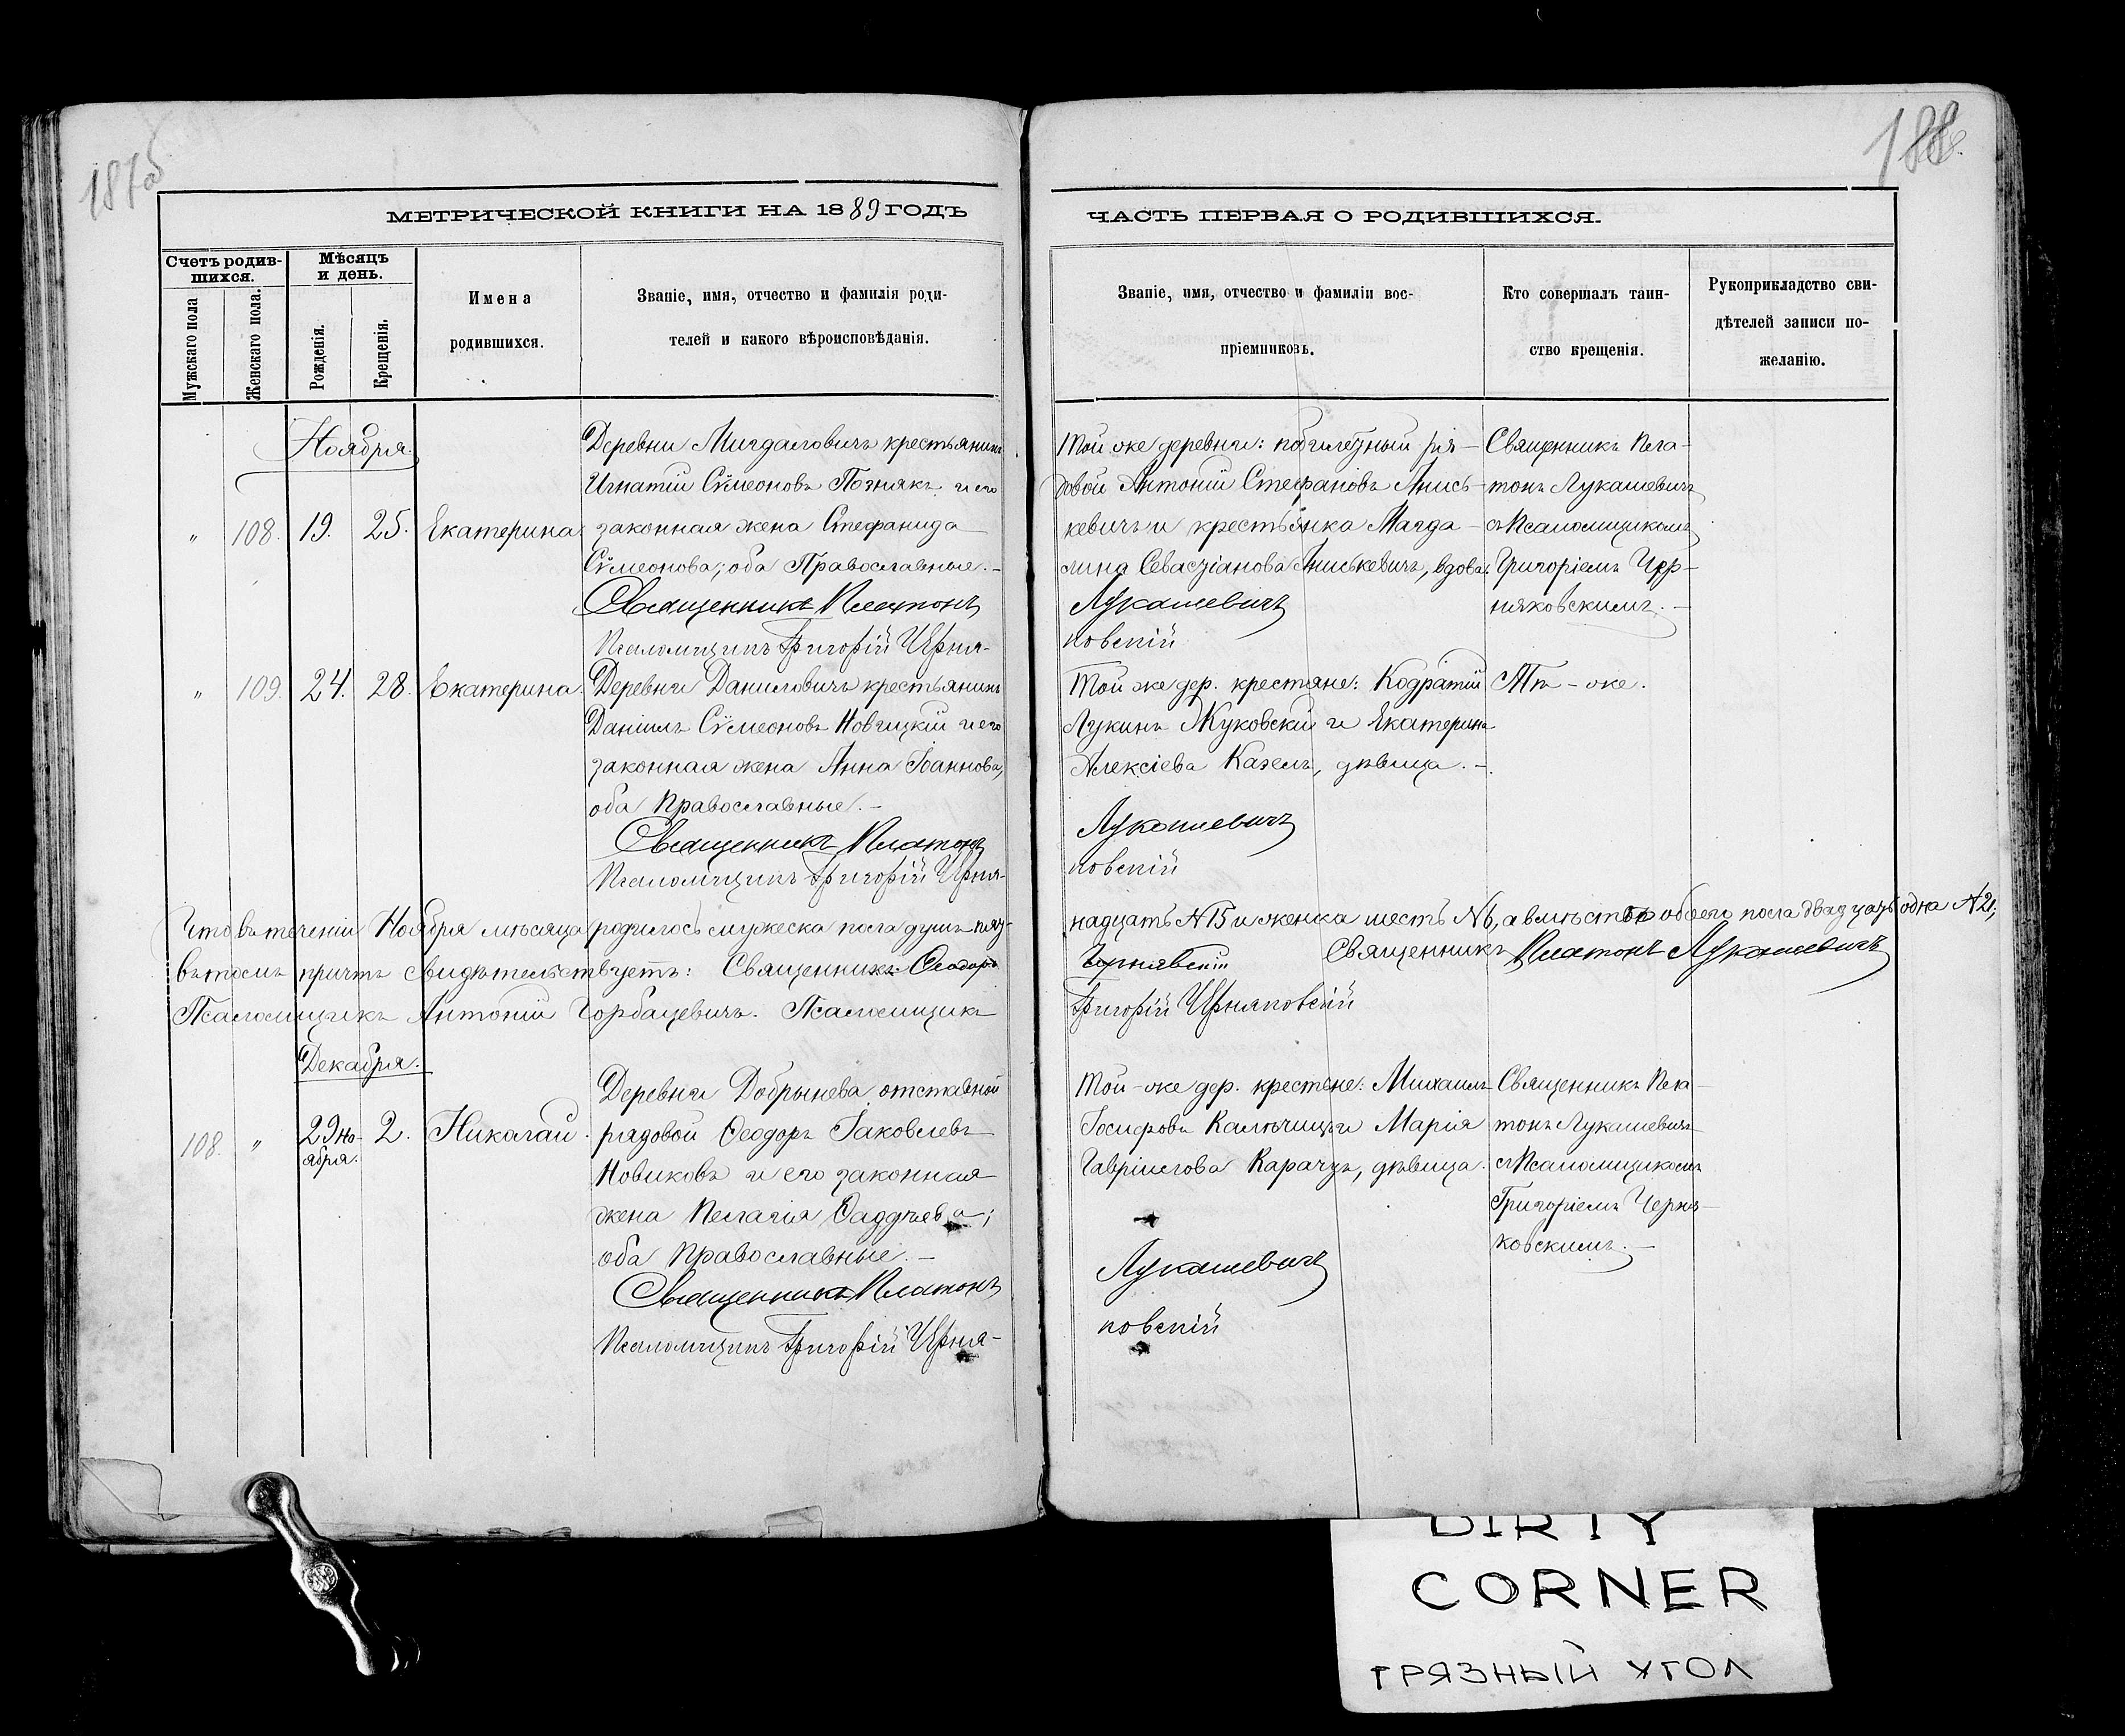 187об
188.
МЕТРИЧЕСКОЙ КНИГИ НА 1889 ГОДЪ
ЧАСТЬ ПЕРВАЯ О РОДИВШИХСЯ.
Счетъ родив-
шихся.
Мужскаго пола
Женскаго пола.
Мѣсяцъ
и день.
Рожденія.
Крещенія.
Имена
родившихся.
Званіе, имя, отчество и фамилія роди-
телей и какого вѣроисповѣданія.
Званіе, имя, отчество и фамиліи вос-
пріемниковъ.
Кто совершалъ таин-
ство крещенія.
Рукоприкладство сви-
дѣтелей записи по-
желанію.
Ноября.
„ 108. 19. 25. Екатерина.
Деревни Мигдаловичъ крестьянинъ
Игнатій Сѵмеоновъ Позняхъ и его
законная жена Стефанида
Сѵмеонова; оба Православные.–
Священникъ Платонъ
Псаломщикъ Григорій Черня-
Той же деревни: побилетный ря-
довой Антоній Стефановъ Анись-
кевичъ и крестьянка Магда-
лина Севастіанова Аниськевичъ, вдова.
Лукашевичъ
ковскій
Священникъ Пла-
тонъ Лукашевичъ
съ Псаломщикомъ
Григоріемъ Чер-
няковскимъ.–
„ 109. 24. 28. Екатерина.
Деревни Даниловичъ крестьянинъ
Даніилъ Сѵмеоновъ Новицкій и его
законная жена Анна Іоаннова,
оба Православные.–
Священникъ Платонъ
Псаломщикъ Григорій Черня-
Той же дер. крестяне: Кодратій
Лукинъ Жуковскій и Екатерина
Алексіева Казелъ, дѣвица.–
Лукашевичъ
ковскій
Тѣ-же.
Что въ теченіи Ноября мѣсяца родилось мужеска пола душъ пят-
надцать №15 и женска шесть №6, а вмѣстѣ обоего пола двадцать одна №21;
въ томъ причтъ свидѣтельствуетъ: Священникъ Ѳеодоръ
Чернявскій Священникъ Платонъ Лукашевичъ
Псаломщикъ Антоній Горбацевичъ. Псаломщикъ
Григорій Черняковскій
Декабря.
108. „ 29 но-
ября. 2. Николай.
Деревни Добрынева отставной
рядовой Ѳеодоръ Іаковлевъ
Новиковъ и его законная
жена Пелагія Ѳаддѣева;
оба Православные.–
Священникъ Платонъ
Псаломщикъ Григорій Черня-
Той-же дер. крестяне: Михаилъ
Іосифовъ Калѣчицъ и Марія
Гавріилова Карачъ, дѣвица.
Лукашевичъ
ковскій
Священникъ Пла-
тонъ Лукашевичъ
съ Псаломщикомъ
Григоріемъ Черня-
ковскимъ.–
DIRTY
CORNER
ГРЯЗНЫЙ УГОЛ